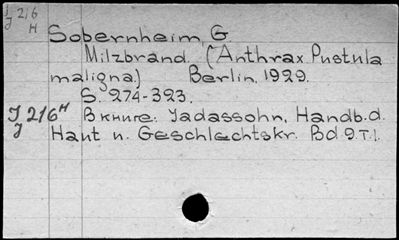 J 216 H
J
Sobernheim, G
Milzbrand, (Anthrax. Pustula
maligna.) Berlin, 1929.
S. 274-323.
J 216 H В книге: Jadassohn, Handb. d.
J Haut u. Geschlechtskr. Bd 9. T. 1.